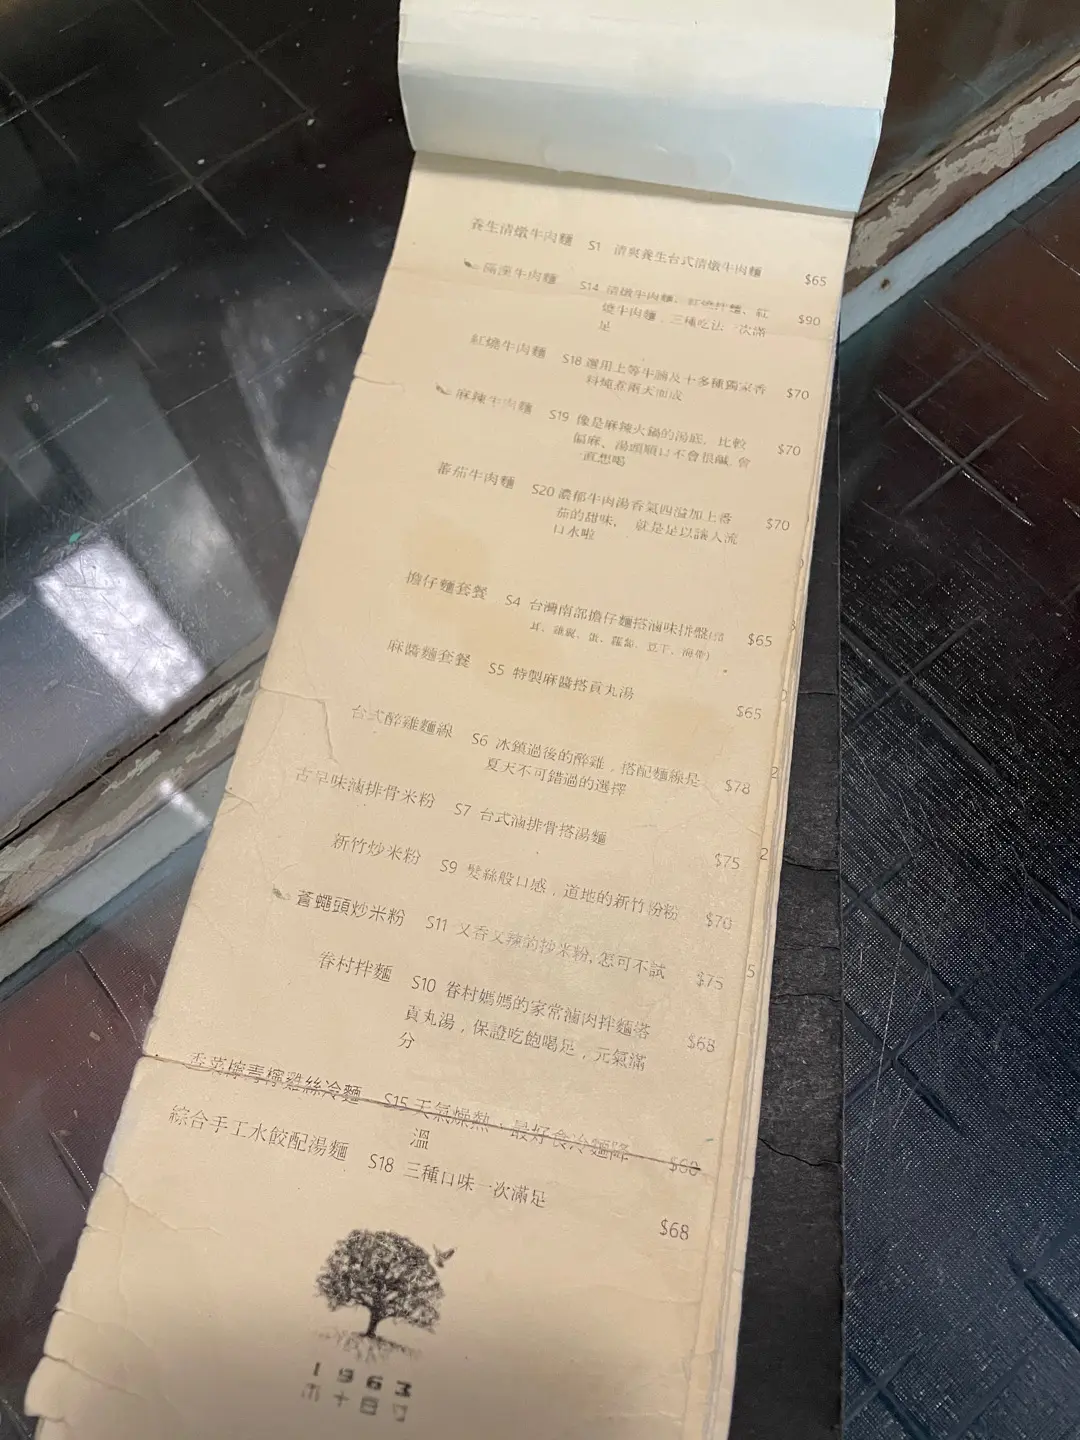 養生清燉牛肉麵 S1 清爽養生台式清燉牛肉麵 $65
牛肉麵 S14 清燉牛肉麵、紅燒拌麵、紅 $90
燒牛肉麵，三種吃法一次滿
足
紅燒牛肉麵 S18 選用上等牛腩及十多種獨家香 $70
料燉煮兩天而成
麻辣牛肉麵 S19 像是麻辣火鍋的湯底，比較 $70
偏麻、湯頭順口不會很鹹，會
一直想喝
蕃茄牛肉麵 S20 濃郁牛肉湯香氣四溢加上番 $70
茄的甜味， 就是足以讓人流
口水啦
擔仔麵套餐 S4 台灣南部擔仔麵搭滷味拼盤 $65
耳、雞翼、蛋、蘿蔔、豆干、海帶)
麻醬麵套餐 S5 特製麻醬搭貢丸湯 $65
台式醉雞麵線 S6 冰鎮過後的醉雞，搭配麵線是 $78
夏天不可錯過的選擇
古早味滷排骨米粉 S7 台式滷排骨搭湯麵 $75
新竹炒米粉 S9 髮絲般口感，道地的新竹粉 $70
蒼蠅頭炒米粉 S11 又香又辣的炒米粉,怎可不試 $75
眷村拌麵 S10 眷村媽媽的家常滷肉拌麵搭 $68
貢丸湯，保證吃飽喝足，元氣滿
分
香菜檸青檸雞絲冷麵 S15 天氣燥熱，最好食冷麵降 $68
溫
綜合手工水餃配湯麵 S18 三種口味一次滿足 $68
1963